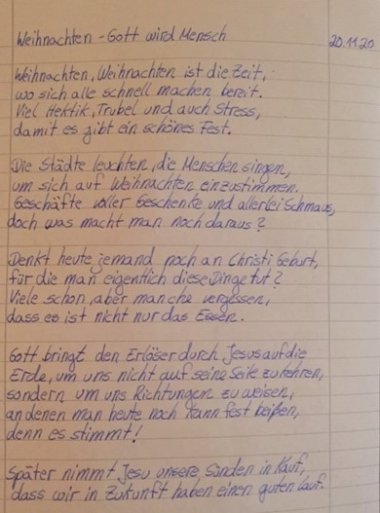 Weihnachten - Gott wird Mensch 20.11.20
Weihnachten, Weihnachten ist die Zeit,
wo sich alle schnell machen bereit.
Viel Hektik, Trubel und auch Stress,
damit es gibt ein schönes Fest.
Die Städte leuchten, die Menschen singen,
um sich auf Weihnachten einzustimmen.
Geschäfte voller Geschenke und allerlei Schmaus,
doch was macht man noch daraus?
Denkt heute jemand noch an Christi Geburt,
für die man eigentlich diese Dinge tut?
Viele schon, aber manche vergessen,
dass es ist nicht nur das Essen.
Gott bringt den Erlöser durch Jesus auf die
Erde, um uns nicht auf seine Seite zu kehren,
sondern um uns Richtungen zu weisen,
an denen man heute noch kann fest beißen,
denn es stimmt!
Später nimmt Jesu unsere Sünden in Kauf,
dass wir in Zukunft haben einen guten Lauf.